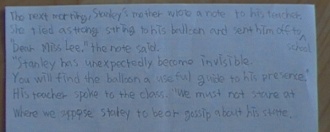 The next morning, Stanley's mother wrote a note to his teacher.
She tied a strong string to his balloon and sent him off to school
"Dear Miss Lee," the note said.
"Stanley has unexpectedly become invisible.
You will find the balloon a useful guide to his presence."
His teacher spoke to the class. "We must not stare at
where we suppose Stanley to be or gossip about his state.